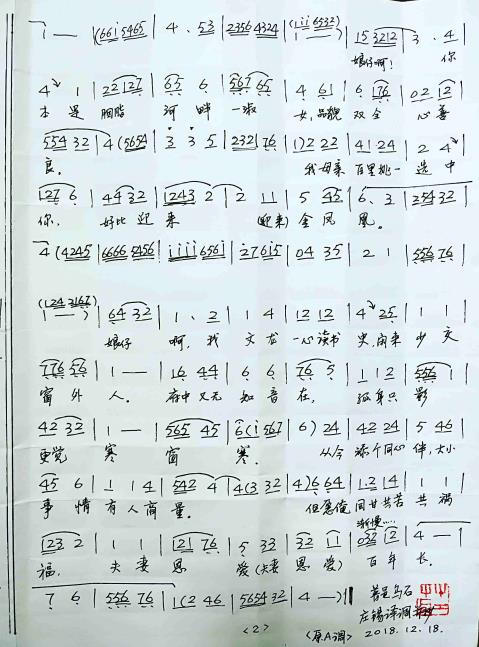 1 — | (661 5465 | 4 . 53 | 2356 4324 | (111 6532) 1 — ) | 15 3212 | 3 . 4
娘仔啊! 你
4 1 | 22 127 | 65 6 | 567 65 | 4 61 | 6 176 | 02 12
本是 胭脂 河畔 一淑 女,品貌 双全 心善
554 32 | 4 (5654 | 3 3 5 | 232 176 | 1) 2 22 | 41 24 | 2 4
良。 我母亲 百里挑一 选中
127 6 | 44 32 | 1243 2 | 2 11 | 5 45 | 6 . 3 | 254 32
你, 好比 迎来 (迎来) 金凤凰。
4 (4245 | 6666 5456 | 1111 6561 | 27 615 | 04 35 | 2 1 | 556 76
(1243 2167) 1 — ) | 64 32 | 1 . 2 | 1 4 | 12 12 | 4 25 | 1 1
娘仔 啊, 我 文龙 一心读书 史,闲来 少交
776 56 | 1 — | 16 44 | 6 6 | 76 5 | 1 12 | 556 1
窗外 人. 府中又无 知音 在, 孤身只影
42 32 | 1 — | 565 45 | 6 (1 567 | 6) 24 | 42 24 | 5 46
更觉 寒 窗 寒. 从今 添个同心 伴,大小
45 6 | 1 14 | 542 4 | 4 (3 32 | 4) 6 64 | 12 14 | 1 1
事情 有人商量. 但愿俺 同甘共苦 共祸
渐慢.....
123 2 | 1 1 | 121 76 | 5 33 | 32 11 | 032 12 | 4 — |
福, 夫妻 恩 爱 (夫妻 恩爱) 百年 长.
7 6 | 556 76 | 1 (2 46 | 5654 32 | 4 — ) ‖
普邑乌石
庄锡译调
<2> <原A调> 2018.12.18.